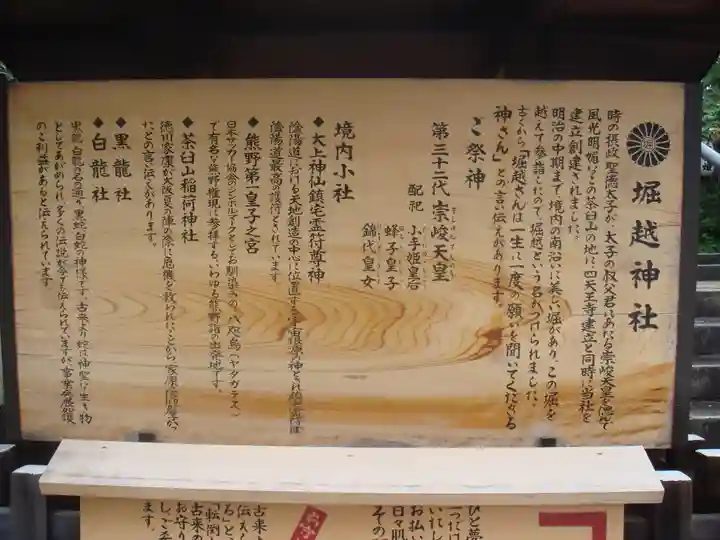 堀越神社
時の摂政聖徳太子が、太子の叔父君にあたる崇峻天皇を偲んで
風光明媚なこの茶臼山の地に、四天王寺建立と同時に当社を
建立創建されました。
明治の中期まで、境内の南沿いに美しい堀があり、この堀を
越えて参詣したので、堀越という名がつけられました。
古くから「堀越さんは一生に一度の願いを聞いてくださる
神さん」との言い伝えがあります。
ご祭神
第三十二代 崇峻天皇
配祀 小手姫皇后
蜂子皇子
錦代皇女
境内小社
◆太上神仙鎮宅霊符尊神
陰陽道における天地創造の中心に位置する宇宙根源の神とされ
陰陽道最高の護符とされています
◆熊野第一皇子之宮
日本サッカー協会のシンボルマークとしてお馴染みの、八咫烏(ヤタガラス)
で有名な熊野権現に参拝する、いわゆる熊野詣の出発地です。
◆茶臼山稲荷神社
徳川家康が大阪夏の陣の際に危機を救われたことから
たとの言い伝えがあります。
◆黒龍社
◆白龍社
黒龍、白龍の名の通り、黒蛇白蛇の神様です。古来より蛇は神聖な生き物
としてあがめられ、多くの伝説が今でも伝えられていますが、事業発展、金銭
のご利益があると伝えられています
ひと夢
一つだけ
いれし
お払い
日々肌
その
古来よ
伝えら
る」と
「転倒
古来の
お守り
しご
ます